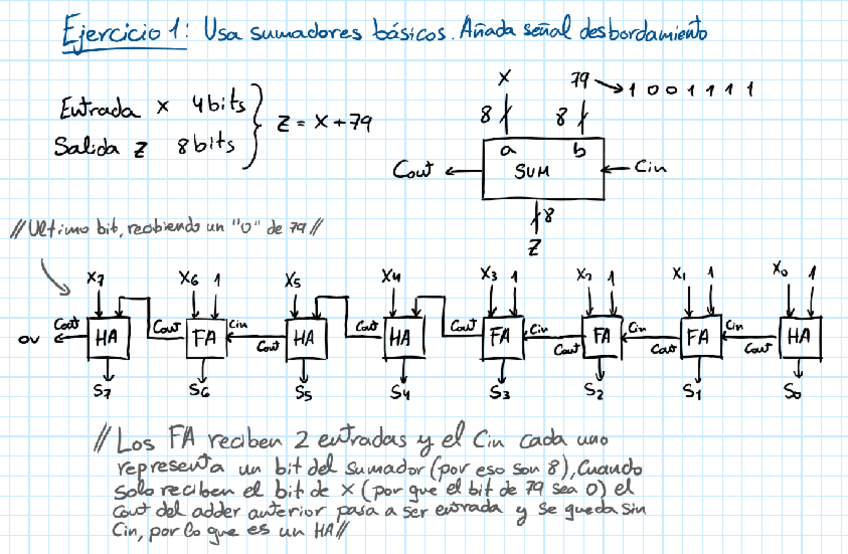 Ejercicio 1: Usa sumadores básicos. Añada señal desbordamiento
Entrada x 4bits
Salida z 8bits
z = x + 79
X 79 → 1 0 0 1 1 1 1
8 8
a b
Cout SUM Cin
8
Z
// Ultimo bit, recibiendo un "0" de 79 //
X7 X6 1 X5 X4 X3 1 X2 1 X1 1 X0 1
ov Cout HA Cout FA Cin Cout HA Cout HA Cout FA Cin Cout FA Cin Cout FA Cin Cout HA
S7 S6 S5 S4 S3 S2 S1 S0
// Los FA reciben 2 entradas y el Cin cada uno
representa un bit del sumador (por eso son 8), Cuando
solo reciben el bit de x (por que el bit de 79 sea 0) el
Cout del adder anterior pasa a ser entrada y se queda sin
Cin, por lo que es un HA //